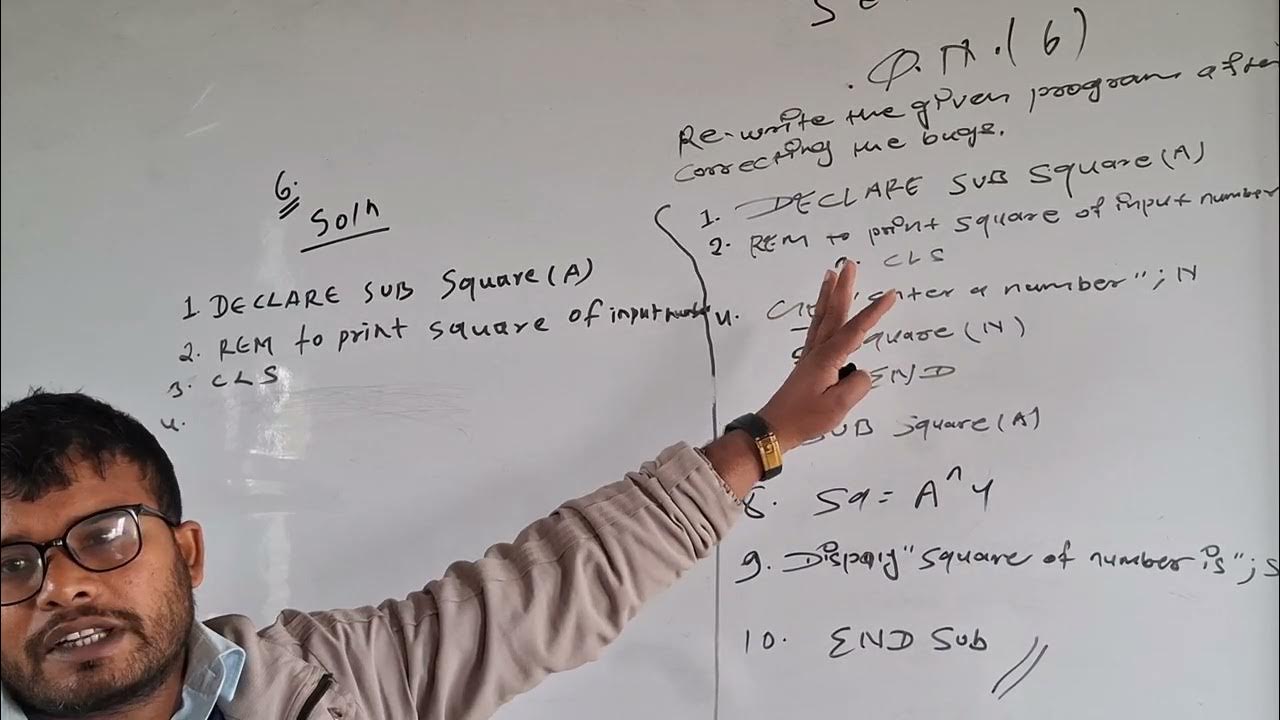 6.
Soln
1 DECLARE SUB Square(A)
2. REM to print square of input number
3. CLS
4.
Q.N.(6)
Re-write the given program after
correcting the bugs.
1. DECLARE SUB Square(A)
2. REM to print square of input number
CLS
4. enter a number"; N
square(N)
END
SUB Square(A)
8. Sq = A^4
9. Dispaly "square of number is"; S
10. END Sub //